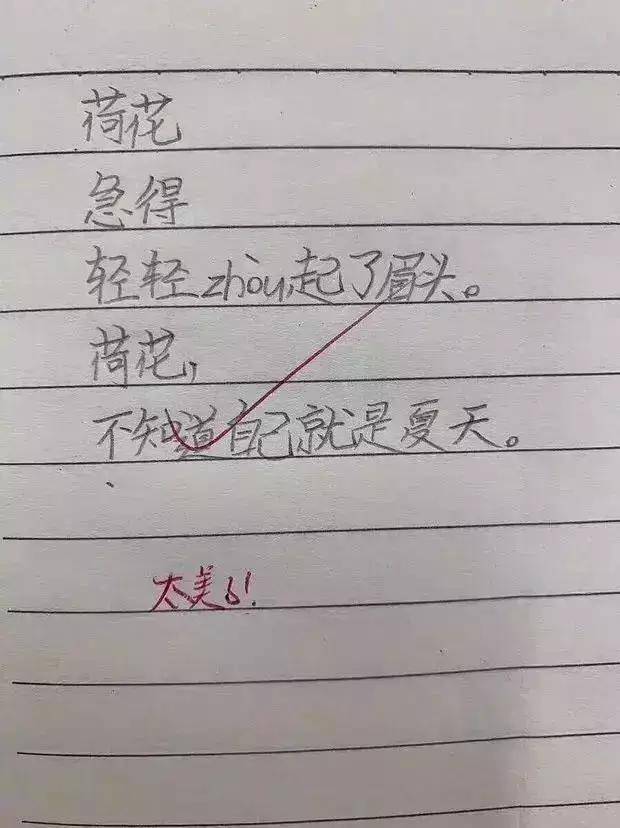 荷花
急得
轻轻zhou起了眉头。
荷花，
不知道自己就是夏天。
太美了!